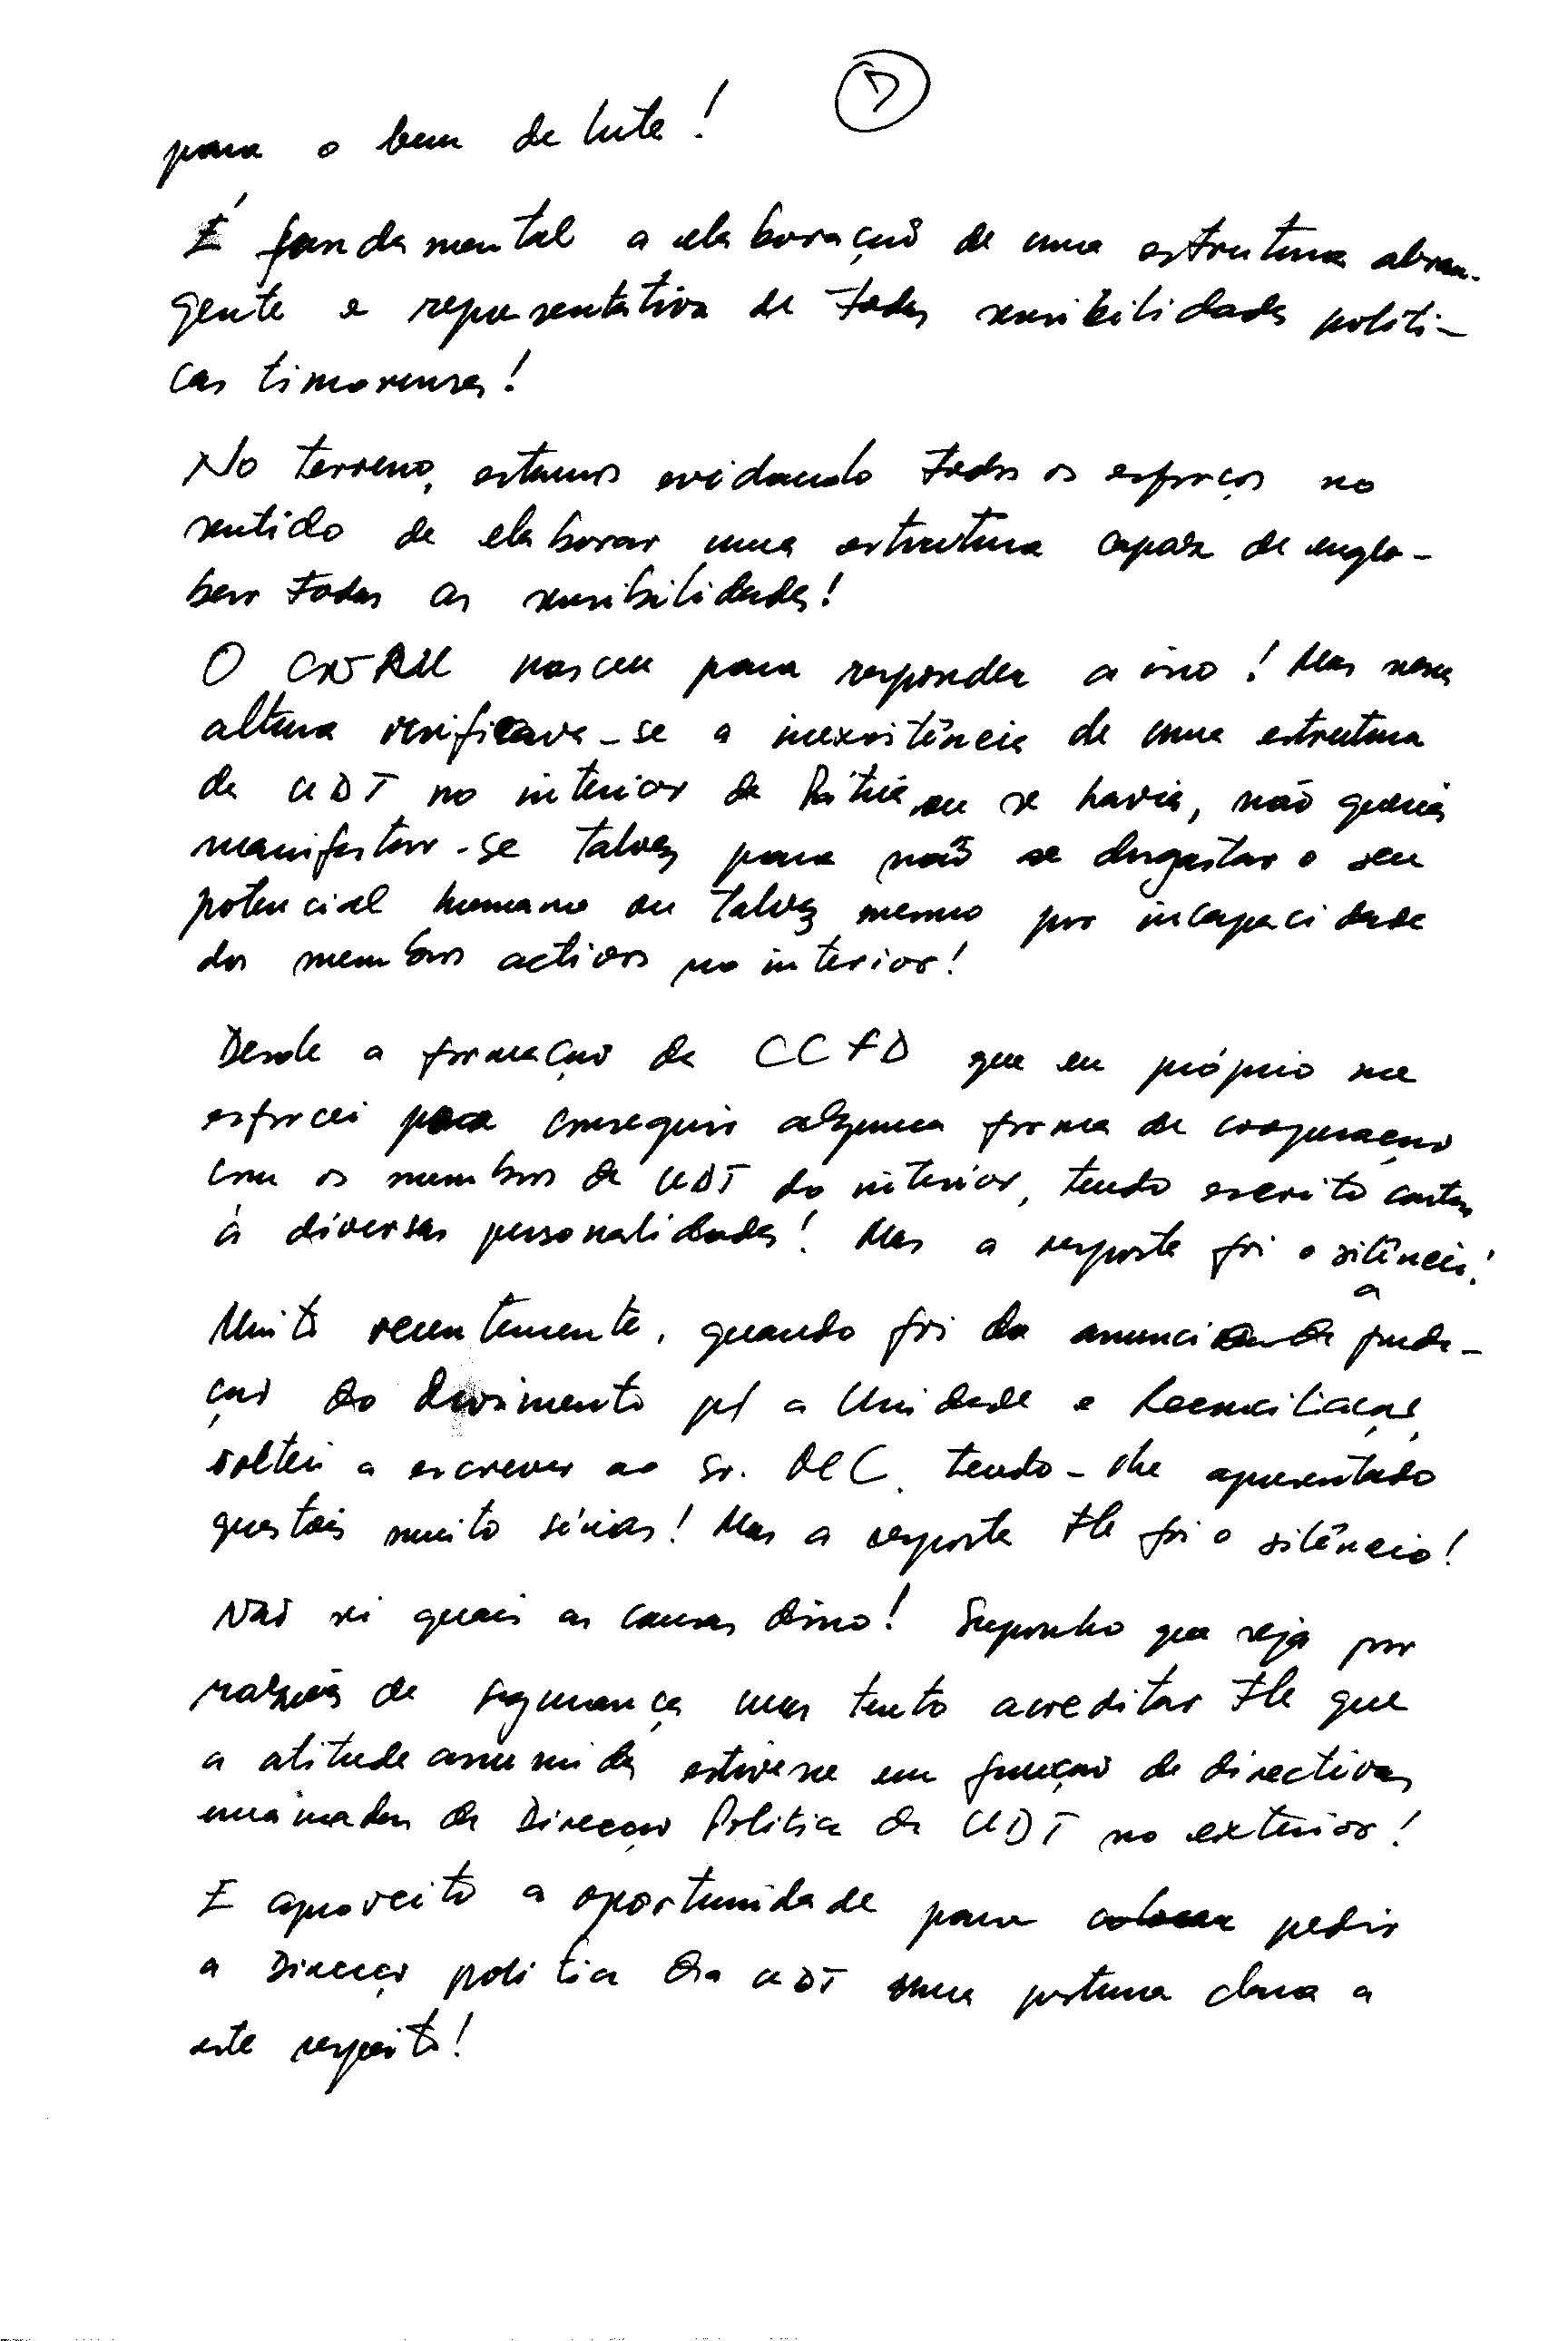 7
para o bem da luta!
É fundamental a elaboração de uma estrutura abran-
gente e representativa de todas sensibilidades políti-
cas timorenses!
No terreno, estamos evidando todos os esforços no
sentido de elaborar uma estrutura capaz de englo-
bar todas as sensibilidades!
O CNRM nasceu para responder a isso! Mas nessa
altura verificava-se a inexistência de uma estrutura
da UDT no interior da Pátria ou se havia, não queria
manifestar-se talvez para não se desgastar o seu
potencial humano ou talvez mesmo por incapacidade
dos membros activos no interior!
Desde a formação da CCFD que eu próprio me
esforcei para conseguir alguma forma de cooperação
com os membros da UDT do interior, tendo escrito cartas
à diversas personalidades! Mas a resposta foi o silêncio!
Muito recentemente, quando foi da anuncia a funda-
ção do Movimento p/ a Unidade e Reconciliação,
voltei a escrever ao Sr. tendo-lhe apresentado
questões muito sérias! Mas a resposta foi o silêncio!
Não sei quais as causas disso! Suponho que seja por
razões de segurança mas tento acreditar que
a atitude assumida estivesse em função de directivas
emanadas da Direcção Política da UDT no exterior!
E aproveito a oportunidade para colocar pedir
a Direcção política da UDT uma postura clara a
este respeito!